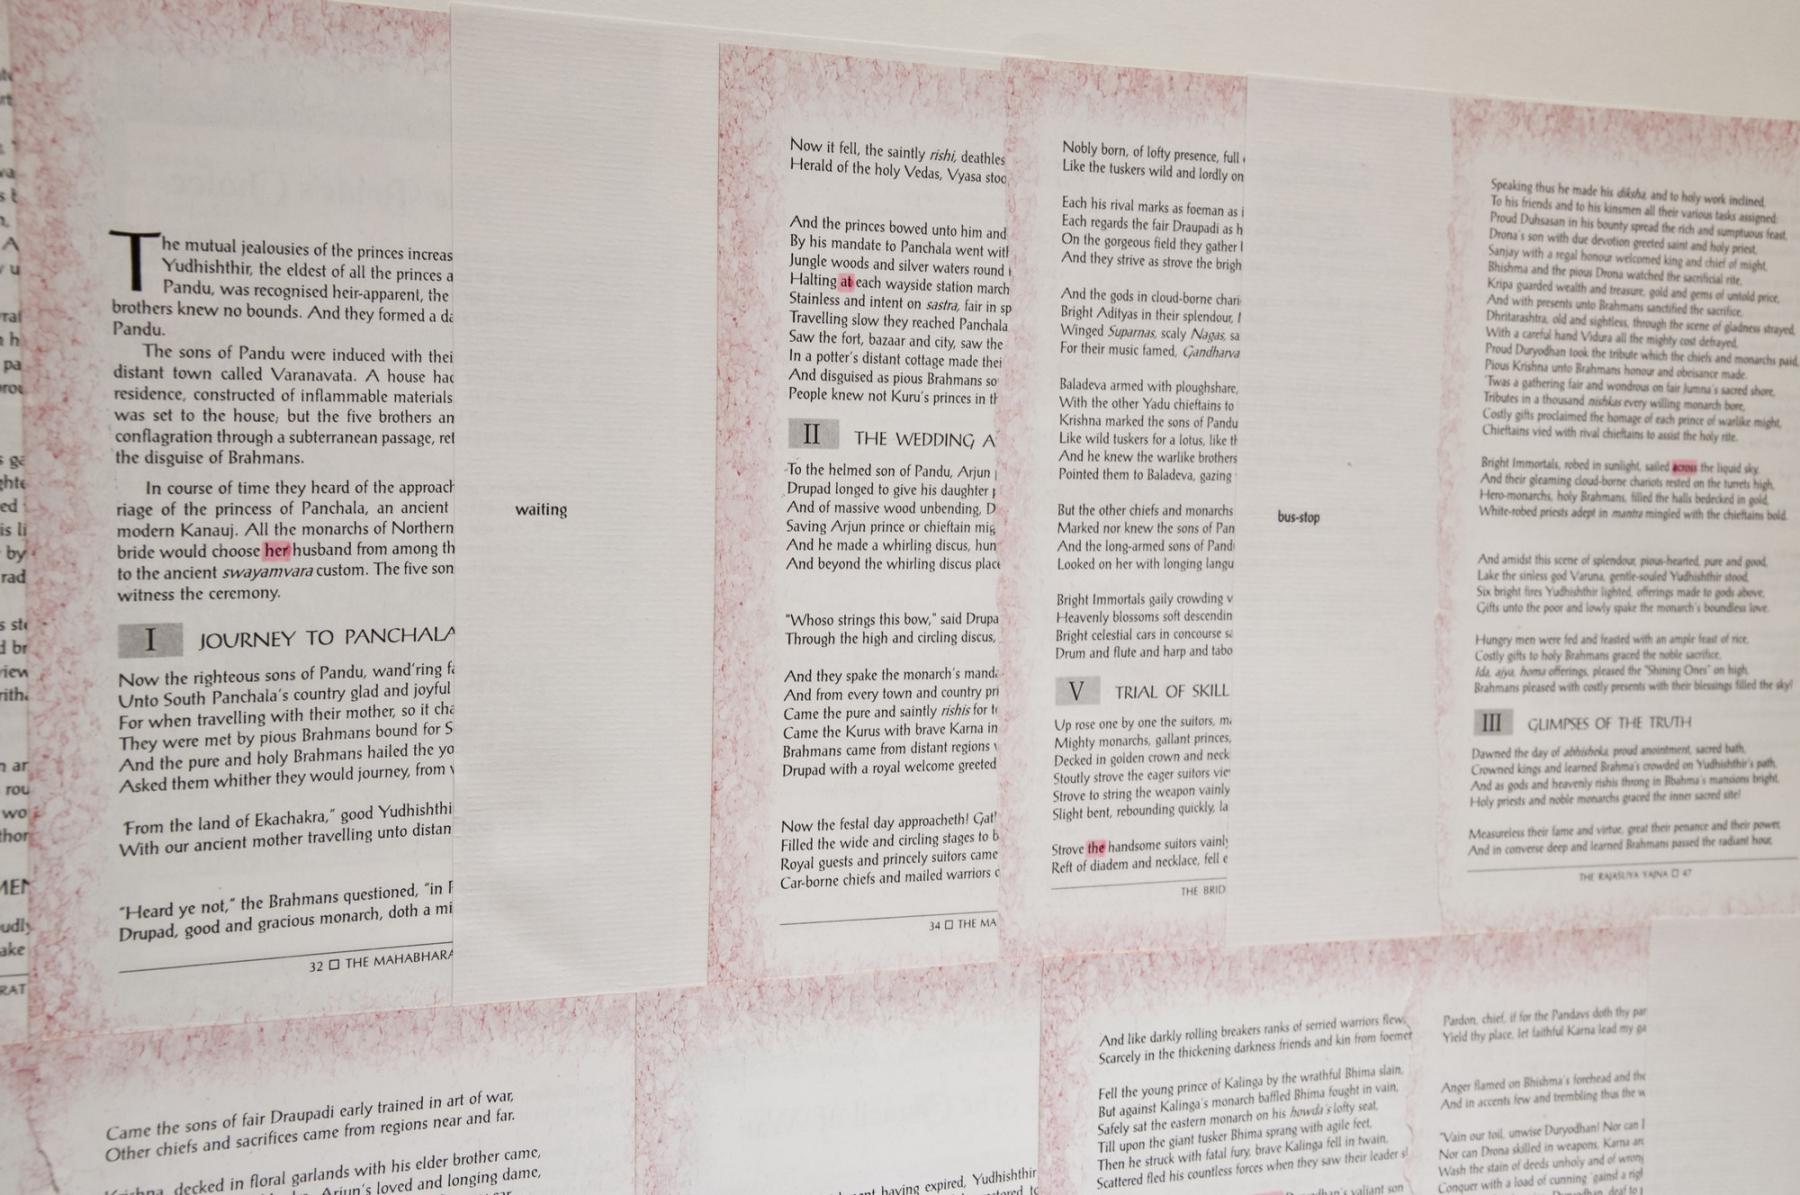 The mutual jealousies of the princes increas
Yudhishthir, the eldest of all the princes a
Pandu, was recognised heir-apparent, the
brothers knew no bounds. And they formed a da
Pandu.
The sons of Pandu were induced with thei
distant town called Varanavata. A house had
residence, constructed of inflammable materials
was set to the house; but the five brothers an
conflagration through a subterranean passage, ret
the disguise of Brahmans.
In course of time they heard of the approach
riage of the princess of Panchala, an ancient
modern Kanauj. All the monarchs of Northern
bride would choose her husband from among th
to the ancient swayamvara custom. The five son
witness the ceremony.
I JOURNEY TO PANCHALA
Now the righteous sons of Pandu, wand'ring fa
Unto South Panchala's country glad and joyful
For when travelling with their mother, so it cha
They were met by pious Brahmans bound for S
And the pure and holy Brahmans hailed the yo
Asked them whither they would journey, from
"From the land of Ekachakra," good Yudhishthi
With our ancient mother travelling unto distan
"Heard ye not," the Brahmans questioned, "in
Drupad, good and gracious monarch, doth a mi
32 □ THE MAHABHARA
waiting
Now it fell, the saintly rishi, deathles
Herald of the holy Vedas, Vyasa stoo
And the princes bowed unto him and
By his mandate to Panchala went with
Jungle woods and silver waters round
Halting at each wayside station march
Stainless and intent on sastra, fair in sp
Travelling slow they reached Panchala
Saw the fort, bazaar and city, saw the
In a potter's distant cottage made thei
And disguised as pious Brahmans so
People knew not Kuru's princes in th
II THE WEDDING A
To the helmed son of Pandu, Arjun
Drupad longed to give his daughter
And of massive wood unbending, D
Saving Arjun prince or chieftain mig
And he made a whirling discus, hun
And beyond the whirling discus place
"Whoso strings this bow," said Drupa
Through the high and circling discus,
And they spake the monarch's manda
And from every town and country pri
Came the pure and saintly rishis for t
Came the Kurus with brave Karna in
Brahmans came from distant regions
Drupad with a royal welcome greeted
Now the festal day approacheth! Gat
Filled the wide and circling stages to b
Royal guests and princely suitors came
Car-borne chiefs and mailed warriors
34 □ THE MA
Nobly born, of lofty presence, full
Like the tuskers wild and lordly on
Each his rival marks as foeman as
Each regards the fair Draupadi as h
On the gorgeous field they gather
And they strive as strove the brigh
And the gods in cloud-borne chari
Bright Adityas in their splendour,
Winged Suparnas, scaly Nagas, sa
For their music famed, Gandharva
Baladeva armed with ploughshare,
With the other Yadu chieftains to
Krishna marked the sons of Pandu
Like wild tuskers for a lotus, like th
And he knew the warlike brothers
Pointed them to Baladeva, gazing
But the other chiefs and monarchs
Marked nor knew the sons of Pan
And the long-armed sons of Pand
Looked on her with longing langu
Bright Immortals gaily crowding v
Heavenly blossoms soft descendin
Bright celestial cars in concourse sa
Drum and flute and harp and tabo
V TRIAL OF SKILL
Up rose one by one the suitors, ma
Mighty monarchs, gallant princes,
Decked in golden crown and neck
Stoutly strove the eager suitors vie
Strove to string the weapon vainly
Slight bent, rebounding quickly, la
Strove the handsome suitors vainly
Reft of diadem and necklace, fell e
THE BRID
bus-stop
Speaking thus he made his diksha, and to holy work inclined,
To his friends and to his kinsmen all their various tasks assigned:
Proud Duhsasan in his bounty spread the rich and sumptuous feast,
Drona's son with due devotion greeted saint and holy priest,
Sanjay with a regal honour welcomed king and chief of might,
Bhishma and the pious Drona watched the sacrificial rite,
Kripa guarded wealth and treasure, gold and gems of untold price,
And with presents unto Brahmans sanctified the sacrifice,
Dhritarashtra, old and sightless, through the scene of gladness strayed,
With a careful hand Vidura all the mighty cost defrayed,
Proud Duryodhan took the tribute which the chiefs and monarchs paid,
Pious Krishna unto Brahmans honour and obeisance made.
'Twas a gathering fair and wondrous on fair Jumna's sacred shore,
Tributes in a thousand nishkas every willing monarch bore,
Costly gifts proclaimed the homage of each prince of warlike might,
Chieftains vied with rival chieftains to assist the holy rite.
Bright Immortals, robed in sunlight, sailed across the liquid sky,
And their gleaming cloud-borne chariots rested on the turrets high,
Hero-monarchs, holy Brahmans, filled the halls bedecked in gold,
White-robed priests adept in mantra mingled with the chieftains bold.
And amidst this scene of splendour, pious-hearted, pure and good,
Lake the sinless god Varuna, gentle-souled Yudhishthir stood,
Six bright fires Yudhishthir lighted, offerings made to gods above,
Gifts unto the poor and lowly spake the monarch's boundless love.
Hungry men were fed and feasted with an ample feast of rice,
Costly gifts to holy Brahmans graced the noble sacrifice,
Ida, ajya, homa offerings, pleased the "Shining Ones" on high,
Brahmans pleased with costly presents with their blessings filled the sky!
III GLIMPSES OF THE TRUTH
Dawned the day of abhisheka, proud anointment, sacred bath,
Crowned kings and learned Brahma's crowded on Yudhishthir's path,
And as gods and heavenly rishis throng in Bbahma's mansions bright,
Holy priests and noble monarchs graced the inner sacred site!
Measureless their fame and virtue, great their penance and their power,
And in converse deep and learned Brahmans passed the radiant hour,
THE RAJASUYA YAJNA □ 47
Came the sons of fair Draupadi early trained in art of war,
Other chiefs and sacrifices came from regions near and far.
decked in floral garlands with his elder brother came,
Arjun's loved and longing dame,
having expired, Yudhishthir
And like darkly rolling breakers ranks of serried warriors flew,
Scarcely in the thickening darkness friends and kin from foemer
Fell the young prince of Kalinga by the wrathful Bhima slain,
But against Kalinga's monarch baffled Bhima fought in vain,
Safely sat the eastern monarch on his howda's lofty seat,
Till upon the giant tusker Bhima sprang with agile feet,
Then he struck with fatal fury, brave Kalinga fell in twain,
Scattered fled his countless forces when they saw their leader s
valiant son
Pardon, chief, if for the Pandavs doth thy par
Yield thy place, let faithful Karna lead my ga
Anger flamed on Bhishma's forehead and the
And in accents few and trembling thus the w
"Vain our toil, unwise Duryodhan! Nor can I
Nor can Drona skilled in weapons, Karna an
Wash the stain of deeds unholy and of wron
Conquer with a load of cunning 'gainst a rig